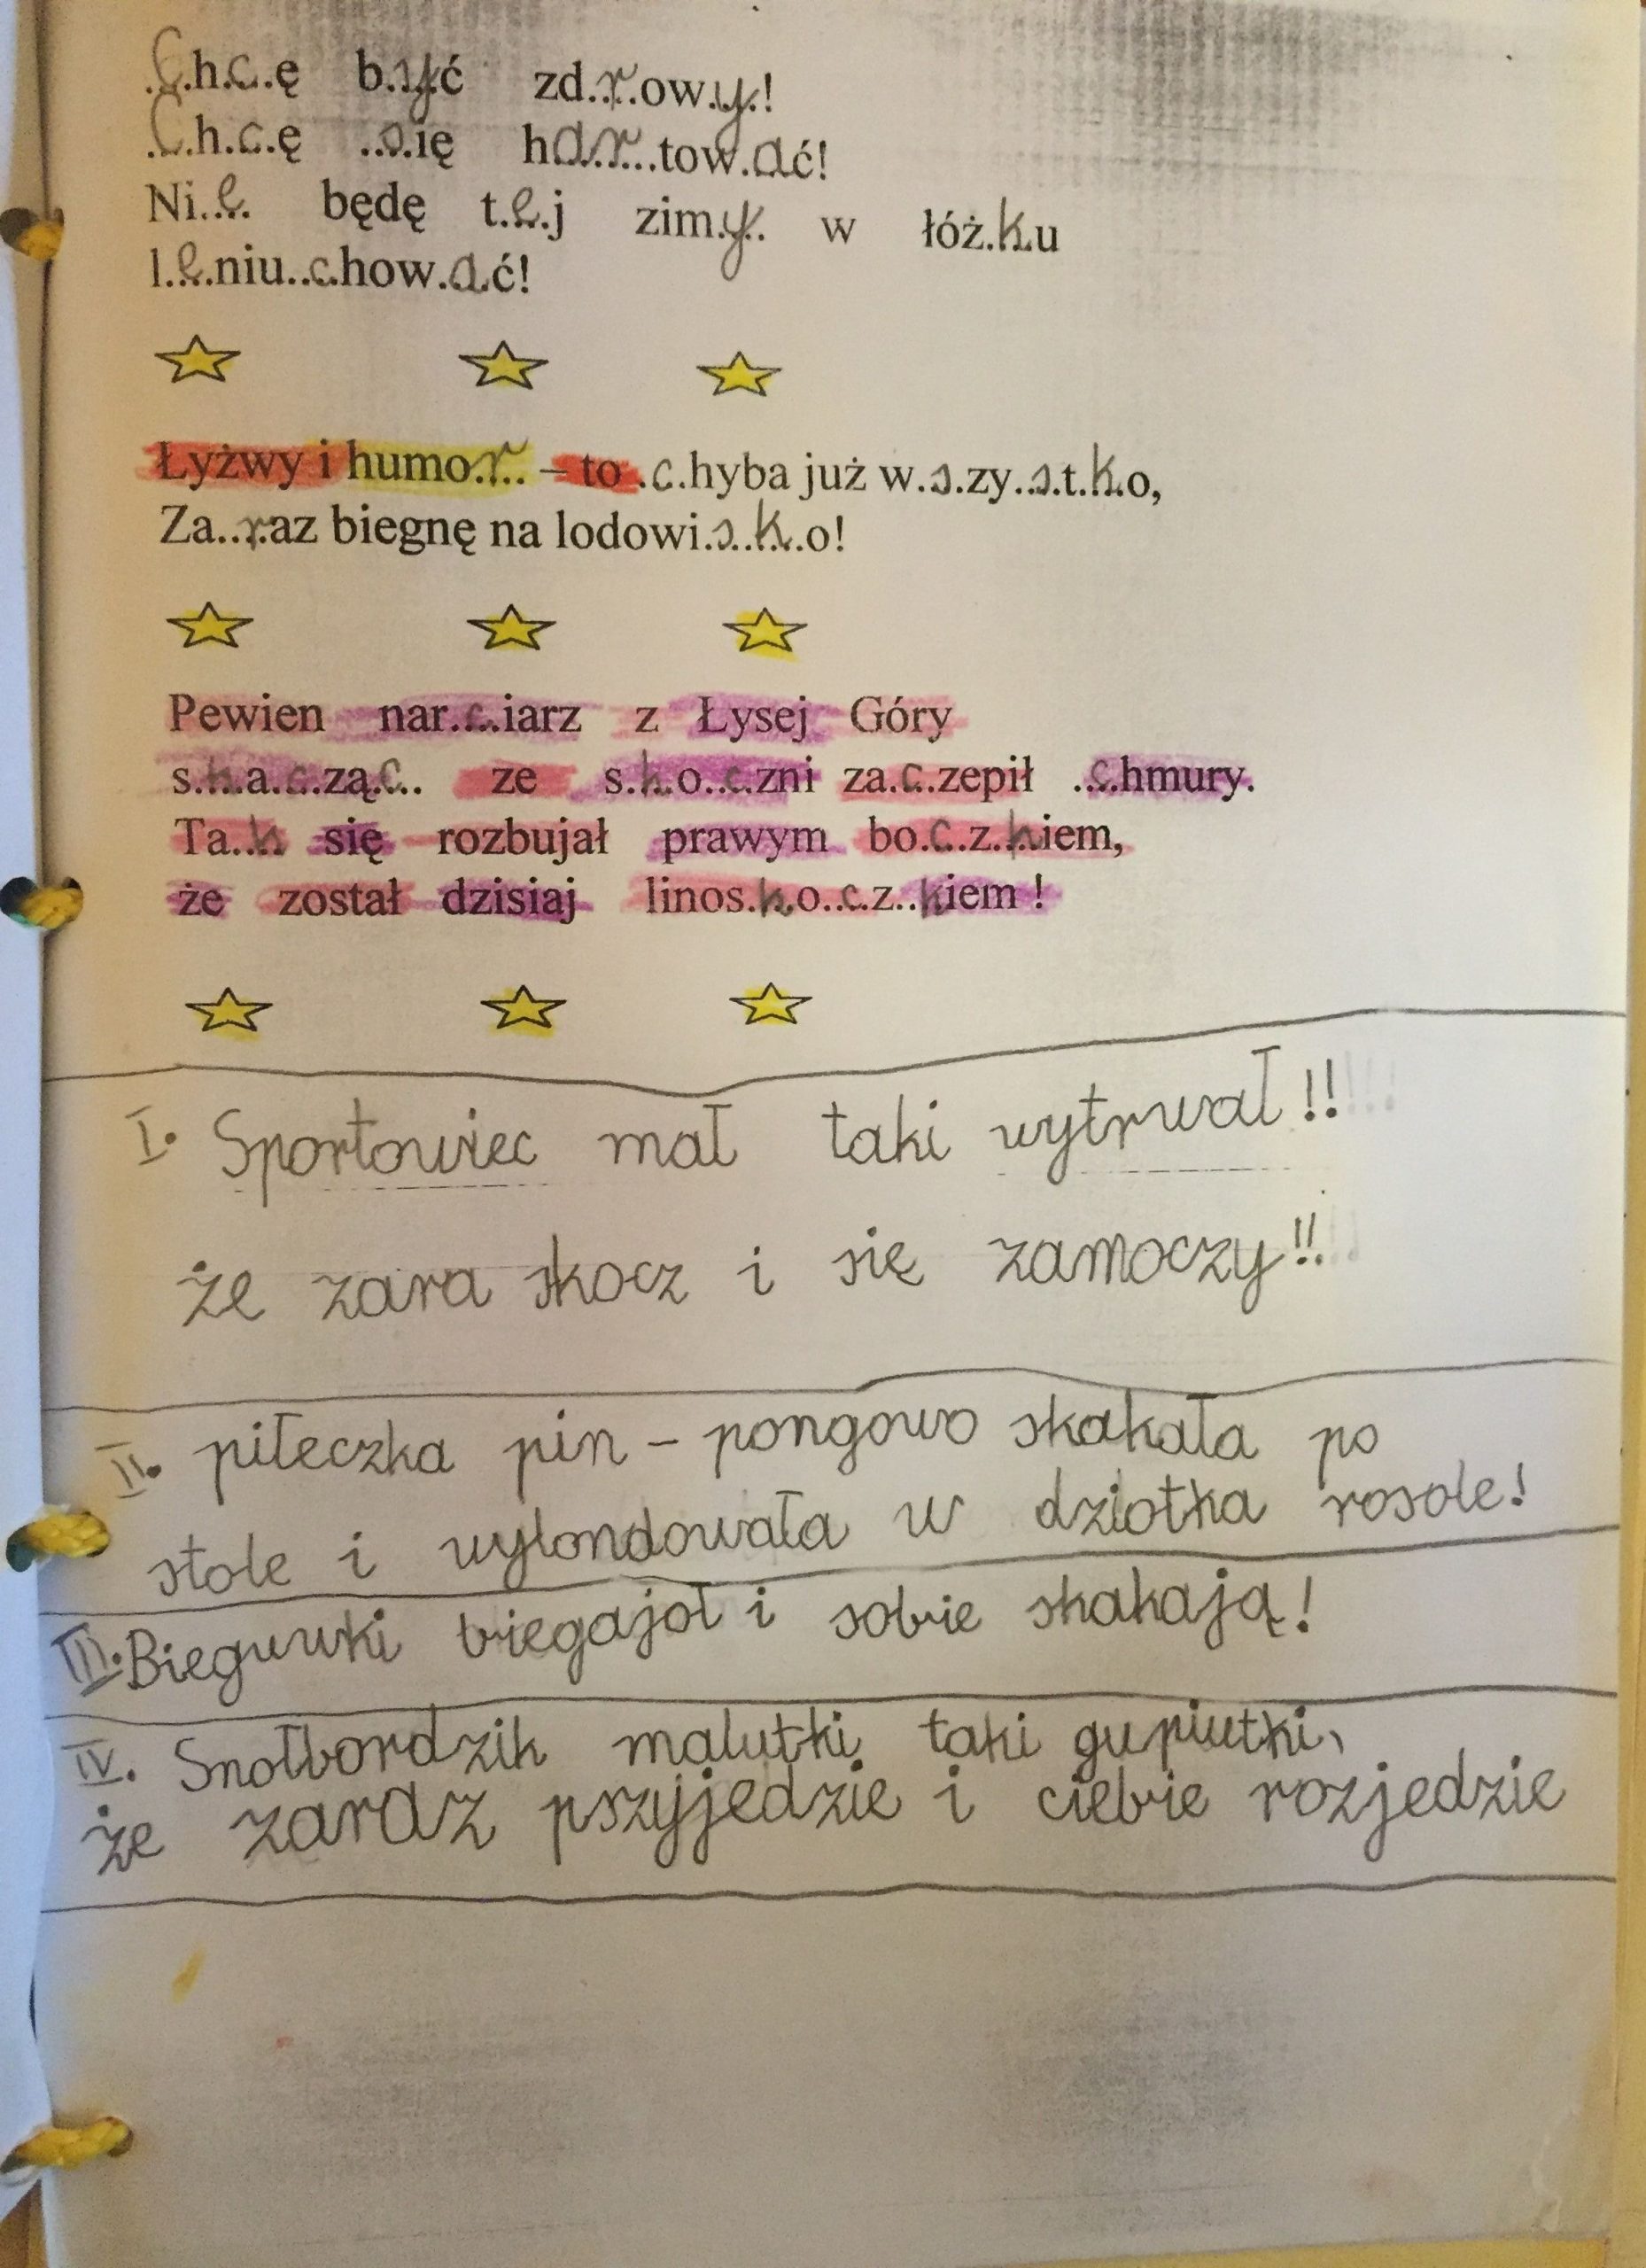 .C.h.c.ę b.y.ć zd.r.ow.y.!
.C.h.c.ę ..s.ię har...tow.a.ć!
Ni.e. będę t.e.j zim.y. w łóż.k.u
l.e.niu..c.how.a.ć!
Łyżwy i humo.r.. – to .c.hyba już w.s.zy..s.t.k.o,
Za..r.az biegnę na lodowi.s..k..o!
Pewien nar.c..iarz z Łysej Góry
s.k.a.c.zą.c.. ze s.k.o..c.zni za.c.zepił .c.hmury.
Ta..k się rozbujał prawym bo.c.z.k.iem,
że został dzisiaj linos.k.o..c.z..kiem !
I. Sportowiec mał taki wytrwał!!
że zara skocz i się zamoczy!!
II. piłeczka pin - pongowo skakała po
stole i wylondowała w dziotka rosole!
III. Bieguwki biegajoł i sobie skakają!
IV. Snołbordzik malutki taki gupiutki,
że zaraz pszyjedzie i ciebie rozjedzie